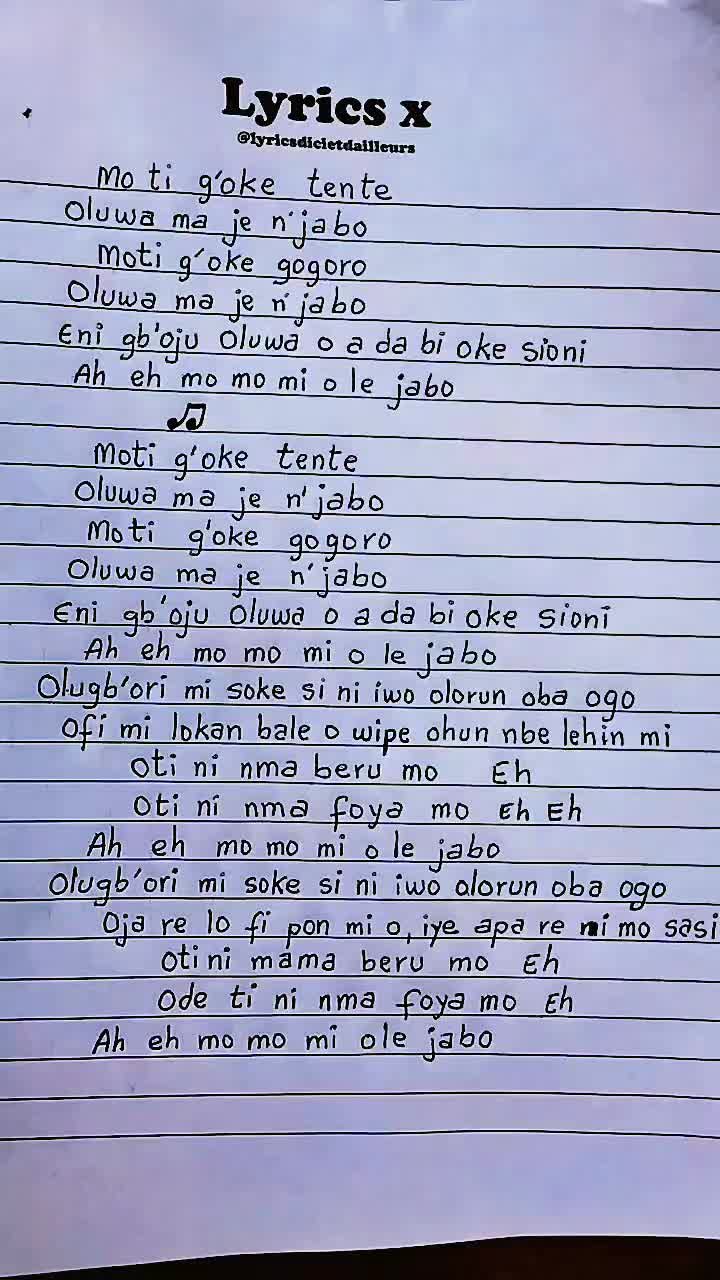 Lyrics x
@lyricsdicietdailleurs
Mo ti g'oke tente
Oluwa ma je n'jabo
Moti g'oke gogoro
Oluwa ma je n'jabo
Eni gb'oju Oluwa o a da bi oke sioni
Ah eh mo mo mi o le jabo
Moti g'oke tente
Oluwa ma je n'jabo
Moti g'oke gogoro
Oluwa ma je n'jabo
Eni gb'oju Oluwa o a da bi oke sioni
Ah eh mo mo mi o le jabo
Olugb'ori mi soke si ni iwo olorun oba ogo
Ofi mi lokan bale o wipe ohun nbe lehin mi
Oti ni nma beru mo Eh
Oti ni nma foya mo Eh Eh
Ah eh mo mo mi o le jabo
Olugb'ori mi soke si ni iwo olorun oba ogo
Oja re lo fi pon mi o, iye apa re ni mo sasi
Oti ni mama beru mo Eh
Ode ti ni nma foya mo Eh
Ah eh mo mo mi ole jabo